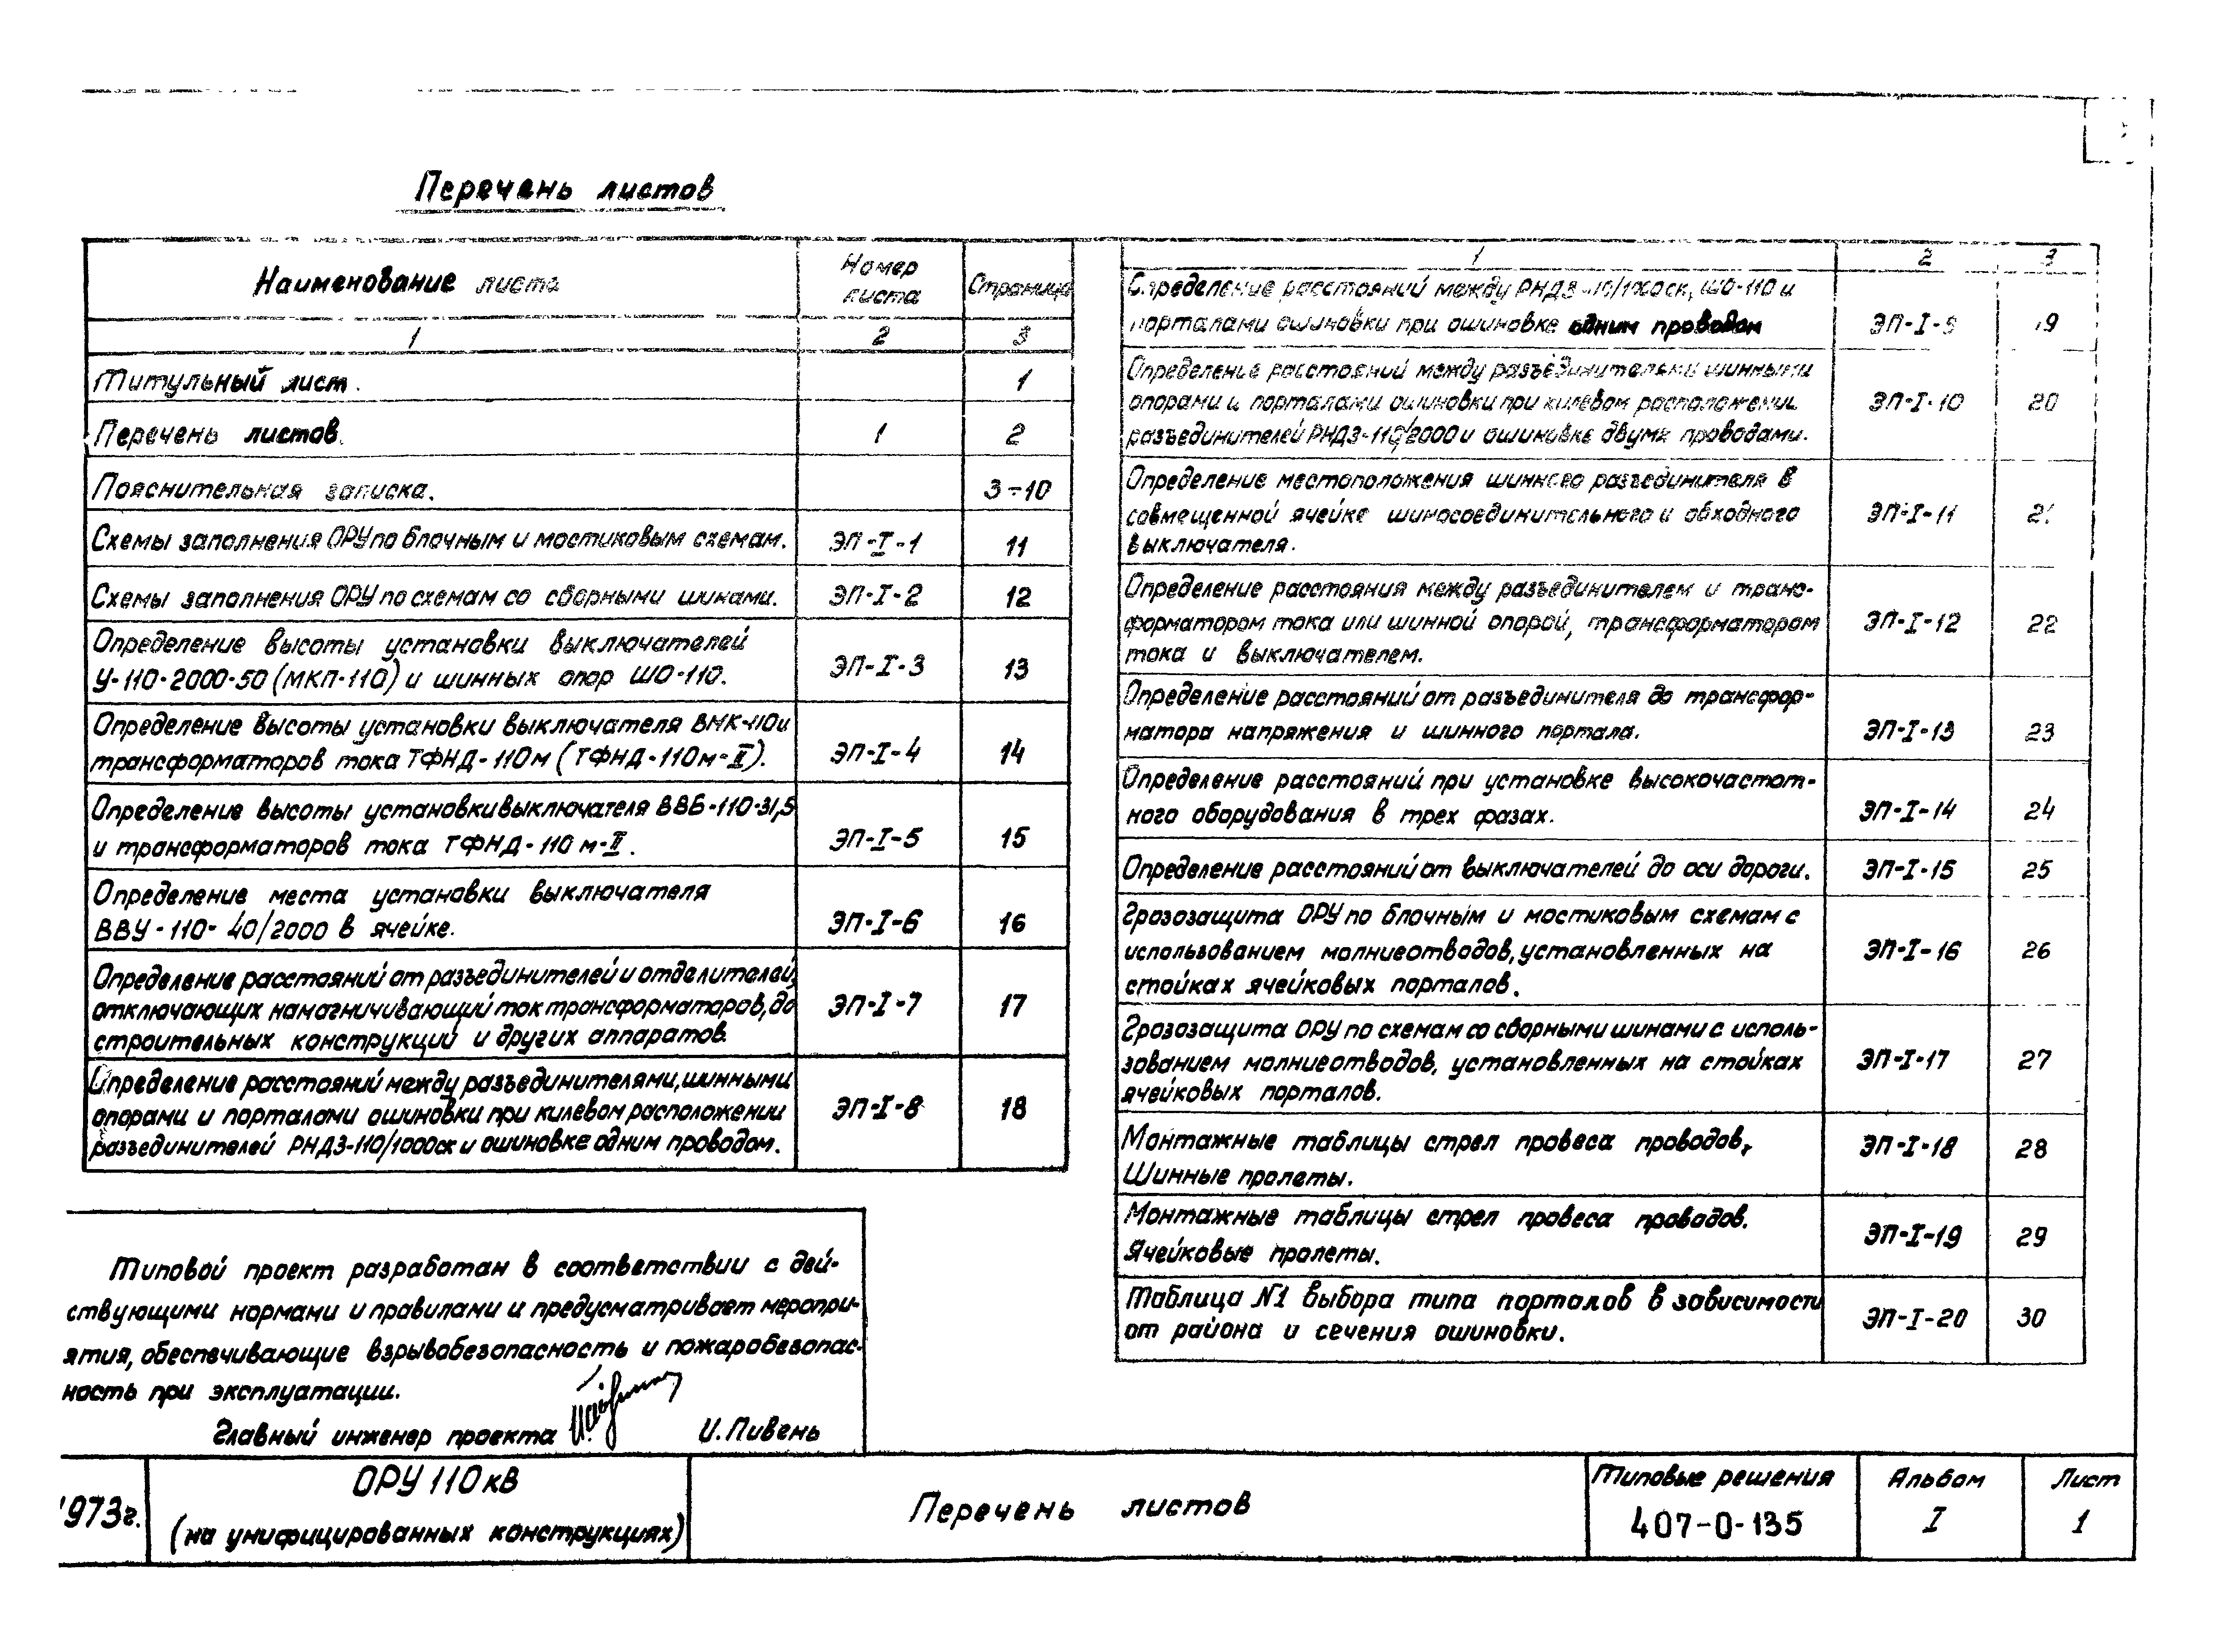 Перечень листов
Наименование листа
Номер листа
Страница
1 2 3
Титульный лист. 1
Перечень листов. 1 2
Пояснительная записка. 3÷10
Схемы заполнения ОРУ по блочным и мостиковым схемам. ЭП-I-1 11
Схемы заполнения ОРУ по схемам со сборными шинами. ЭП-I-2 12
Определение высоты установки выключателей
У-110-2000-50 (МКП-110) и шинных опор ШО-110. ЭП-I-3 13
Определение высоты установки выключателя ВМК-110 и
трансформаторов тока ТФНД-110м (ТФНД-110м-II). ЭП-I-4 14
Определение высоты установки выключателя ВВБ-110-31,5
и трансформаторов тока ТФНД-110 м-II. ЭП-I-5 15
Определение места установки выключателя
ВВУ-110-40/2000 в ячейке. ЭП-I-6 16
Определение расстояний от разъединителей и отделителей,
отключающих намагничивающий ток трансформаторов, до ЭП-I-7 17
строительных конструкций и других аппаратов.
Определение расстояний между разъединителями, шинными
опорами и порталами ошиновки при килевом расположении ЭП-I-8 18
разъединителей РНДЗ-110/1000ск и ошиновке одним проводом.
1 2 3
Определение расстояний между РНДЗ-110/1000ск, ШО-110 и
порталами ошиновки при ошиновке одним проводом ЭП-I-9 19
Определение расстояний между разъединителями шинными
опорами и порталами ошиновки при килевом расположении ЭП-I-10 20
разъединителей РНДЗ-110/2000 и ошиновке двумя проводами.
Определение местоположения шинного разъединителя в
совмещенной ячейке шиносоединительного и обходного ЭП-I-11 21
выключателя.
Определение расстояния между разъединителем и транс-
форматором тока или шинной опорой, трансформатором ЭП-I-12 22
тока и выключателем.
Определение расстояний от разъединителя до трансфор-
матора напряжения и шинного портала. ЭП-I-13 23
Определение расстояний при установке высокочастот-
ного оборудования в трех фазах. ЭП-I-14 24
Определение расстояний от выключателей до оси дороги. ЭП-I-15 25
Грозозащита ОРУ по блочным и мостиковым схемам с
использованием молниеотводов, установленных на ЭП-I-16 26
стойках ячейковых порталов.
Грозозащита ОРУ по схемам со сборными шинами с исполь-
зованием молниеотводов, установленных на стойках ЭП-I-17 27
ячейковых порталов.
Монтажные таблицы стрел провеса проводов, ЭП-I-18 28
Шинные пролеты.
Монтажные таблицы стрел провеса проводов.
Ячейковые пролеты. ЭП-I-19 29
Таблица №1 выбора типа порталов в зависимости
от района и сечения ошиновки. ЭП-I-20 30
Типовой проект разработан в соответствии с дей-
ствующими нормами и правилами и предусматривает меропри-
ятия, обеспечивающие взрывобезопасность и пожаробезопас-
ность при эксплуатации.
Главный инженер проекта И. Пивень
1973г.
ОРУ 110 кВ
(на унифицированных конструкциях)
Перечень листов
Типовые решения
407-0-135
Альбом
I
Лист
1